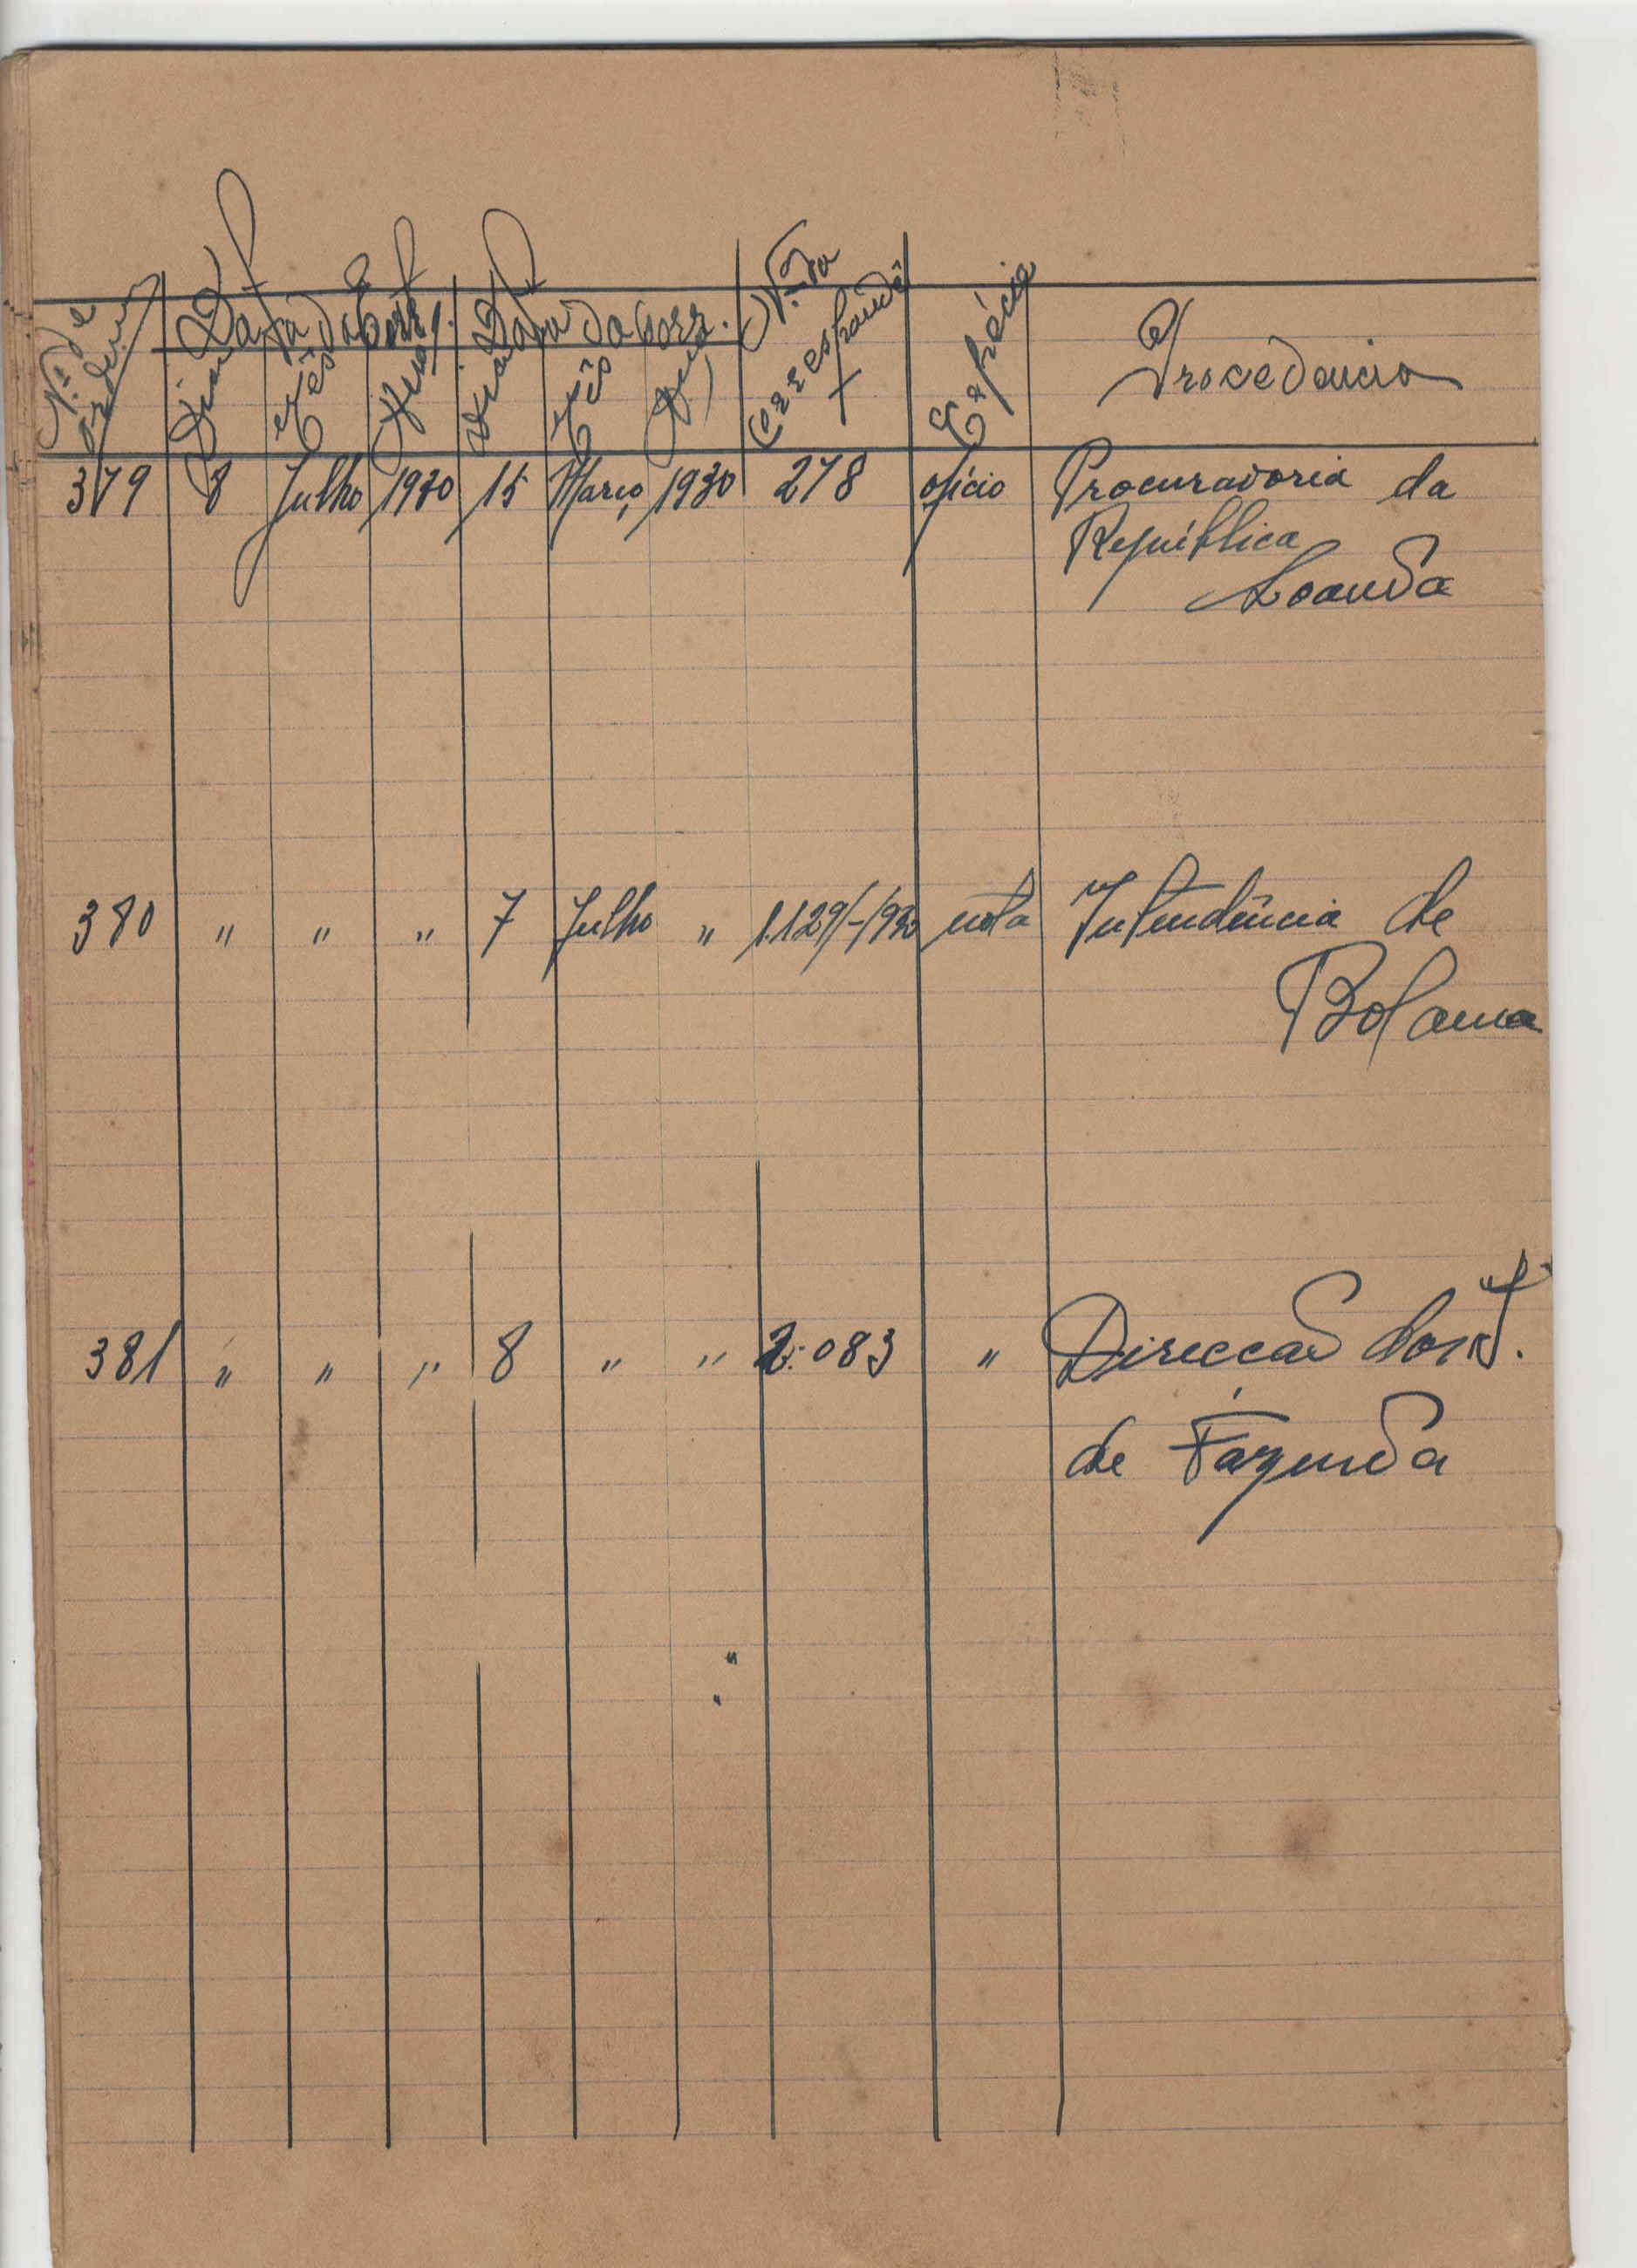 Nº de ordem Data da Ent. Data da Corr. Nº da Correspondê Espécie Procedencia
Dia Mês Ano Dia Mês Ano
379 8 Julho 1930 15 Março 1930 278 ofício Procuradoria da
República
Loanda
380 " " " 7 Julho " 1.129/-/930 nota Intendência de
Bolama
381 " " " 8 " " 2:083 " Direccão
de Fazenda